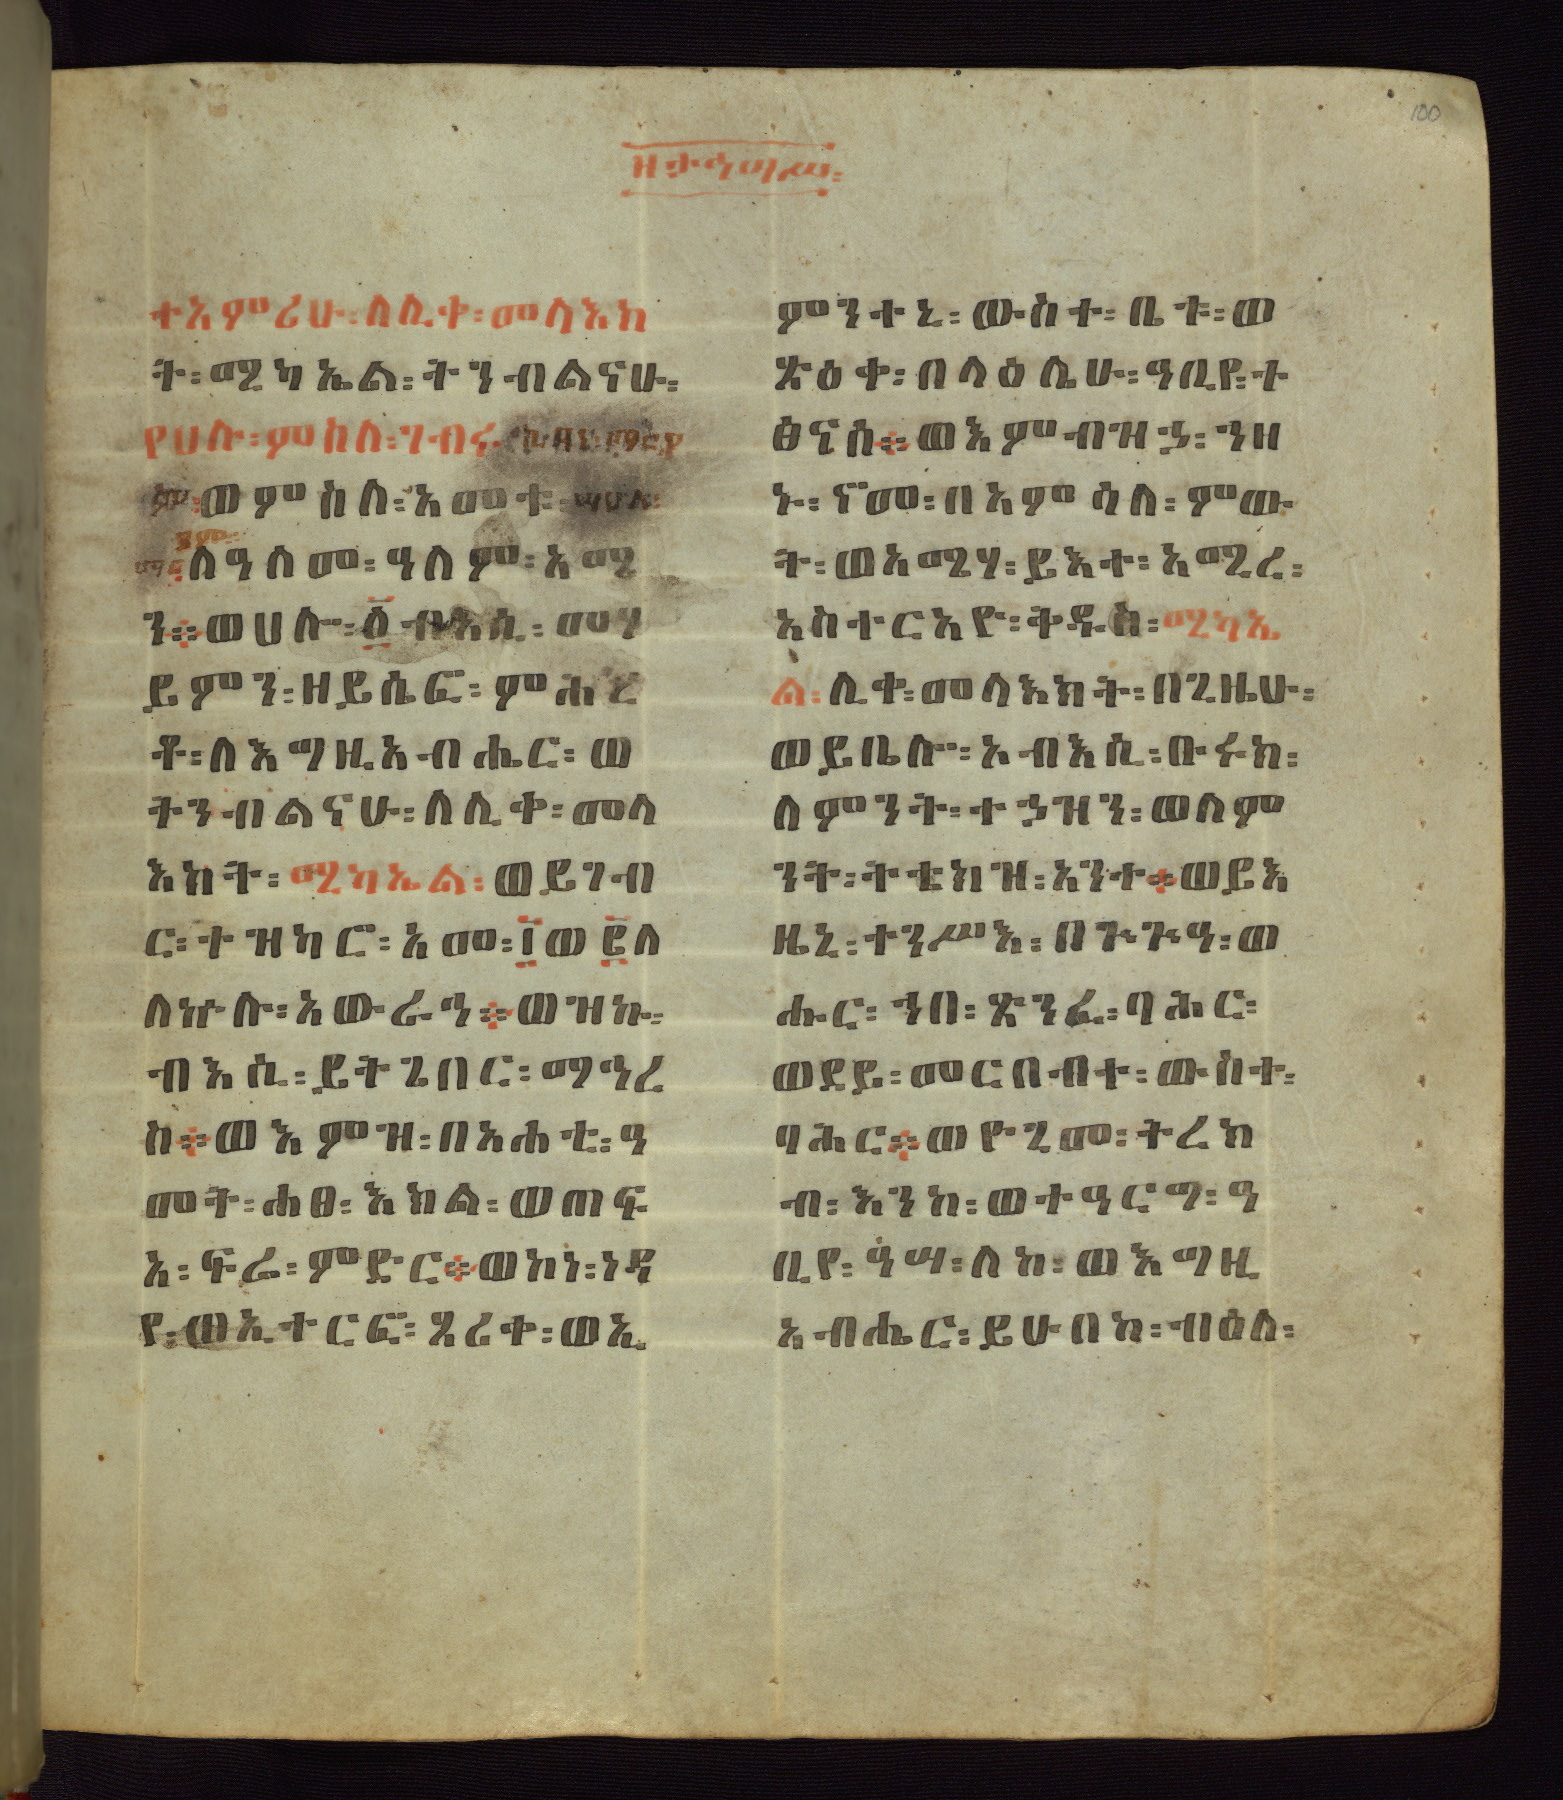 100
ዘታኅሣሥ፡
ተአምሪሁ፡ለሊቀ፡መላእክ
ት፡ሚካኤል፡ትንብልናሁ፡
የሀሉ፡ምስለ፡ገብሩ
ወምስለ፡አመቱ፡
ለዓለመ፡ዓለም፡አሜ
ን፨ወሀሎ፡፩ብእሲ፡መሃ
ይምን፡ዘይሴፍ፡ምሕረ
ቶ፡ለእግዚአብሔር፡ወ
ትንብልናሁ፡ለሊቀ፡መላ
እክት፡ሚካኤል፡ወይገብ
ር፡ተዝካሮ፡አመ፡፲ወ፪ለ
ለኵሉ፡አውራኅ፨ወዝኩ፡
ብእሲ፡ይትጌበር፡ማዓረ
ከ፨ወእምዝ፡በአሐቲ፡ዓ
መት፡ሐፀ፡እክል፡ወጠፍ
አ፡ፍሬ፡ምድር፨ወኮነ፡ነዳ
የ፡ወኢተርፎ፡ጺሪቀ፡ወኢ
ምንተኒ፡ውስተ፡ቤቱ፡ወ
ጼዕቀ፡በላዕሌሁ፡ዓቢየ፡ተ
ፅናስ፨ወእምብዝኃ፡ኀዘ
ኑ፡ኖመ፡በአምሳለ፡ምው
ት፡ወአሜሃ፡ይእተ፡አሚረ፡
አስተርአዮ፡ቅዱስ፡ሚካኤ
ል፡ሊቀ፡መላእክት፡በጊዜሁ፡
ወይቤሎ፡አብእሲ፡ቡሩክ፡
ለምንት፡ተኃዝን፡ወለም
ንት፡ትቴክዝ፡አንተ፨ወይእ
ዜኒ፡ተንሥእ፡በጕጕዓ፡ወ
ሑር፡ኀበ፡ጽንፈ፡ባሕር፡
ወደይ፡መርበብተ፡ውስተ፡
ባሕር፨ወዮጊመ፡ትረክ
ብ፡እንከ፡ወተዓርግ፡ዓ
ቢየ፡ዓሣ፡ለከ፡ወእግዚ
አብሔር፡ይሁበከ፡ብዕለ፡